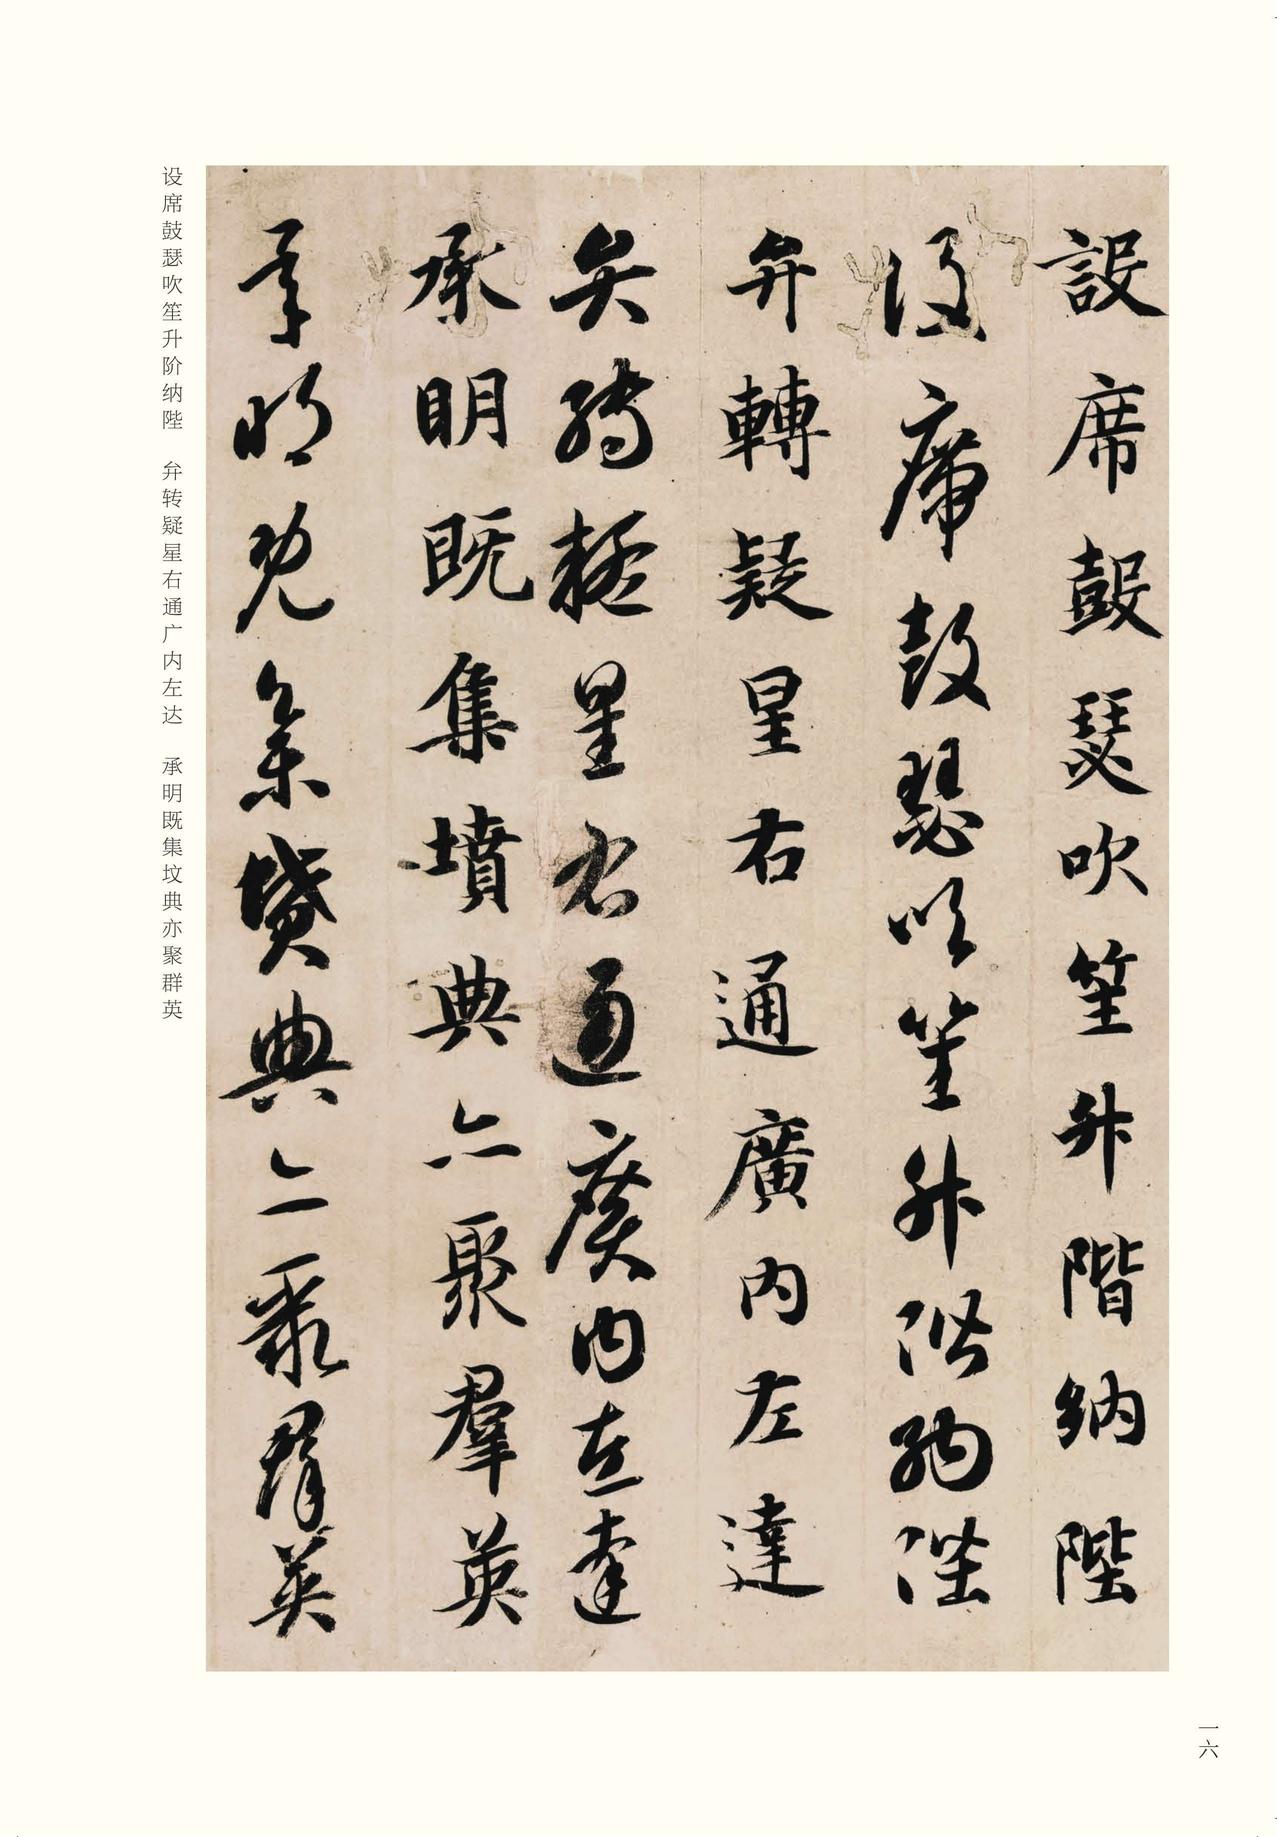 設席鼓瑟吹笙升階納陛
設席鼓瑟吹笙升階納陛
弁轉疑星右通廣内左達
弁轉疑星右通廣内左達
承明既集墳典亦聚羣英
承明既集墳典亦聚羣英
设席鼓瑟吹笙升阶纳陛　弁转疑星右通广内左达　承明既集坟典亦聚群英
一六